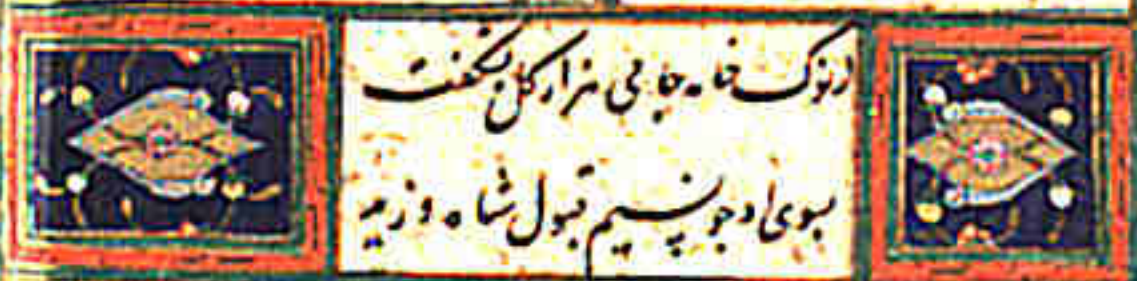 ز نوک خامه جامی هزار گل بشکفت
بسوی او چو نسیم قبول شاه وزید